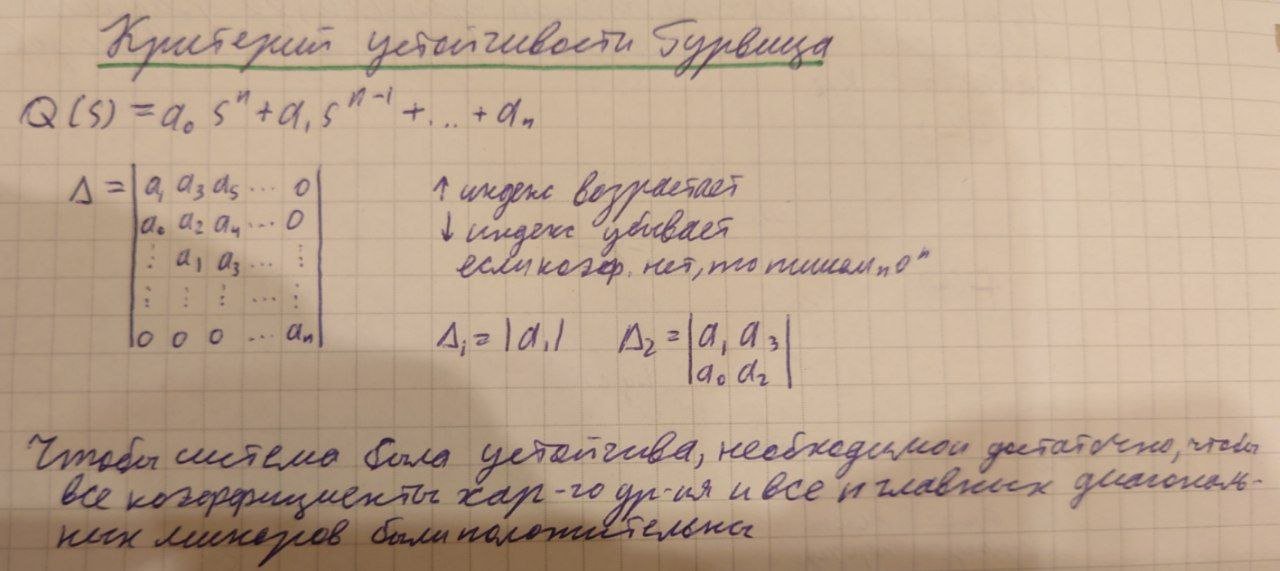 Критерий устойчивости Гурвица
Q(s) = a₀ sⁿ + a₁ sⁿ⁻¹ + ... + aₙ
Δ = | a₁ a₃ a₅ ... 0 |
| a₀ a₂ a₄ ... 0 |
| ⋮ a₁ a₃ ... ⋮ |
| ⋮ ⋮ ⋮ ... ⋮ |
| 0 0 0 ... aₙ |
↑ индекс возрастает
↓ индекс убывает
если коэф. нет, то пишем "0"
Δ₁ = |a₁| Δ₂ = | a₁ a₃ |
| a₀ a₂ |
Чтобы система была устойчива, необходимо и достаточно, чтобы
все коэффициенты хар-го ур-ия и все n главных диагональ-
ных миноров были положительны